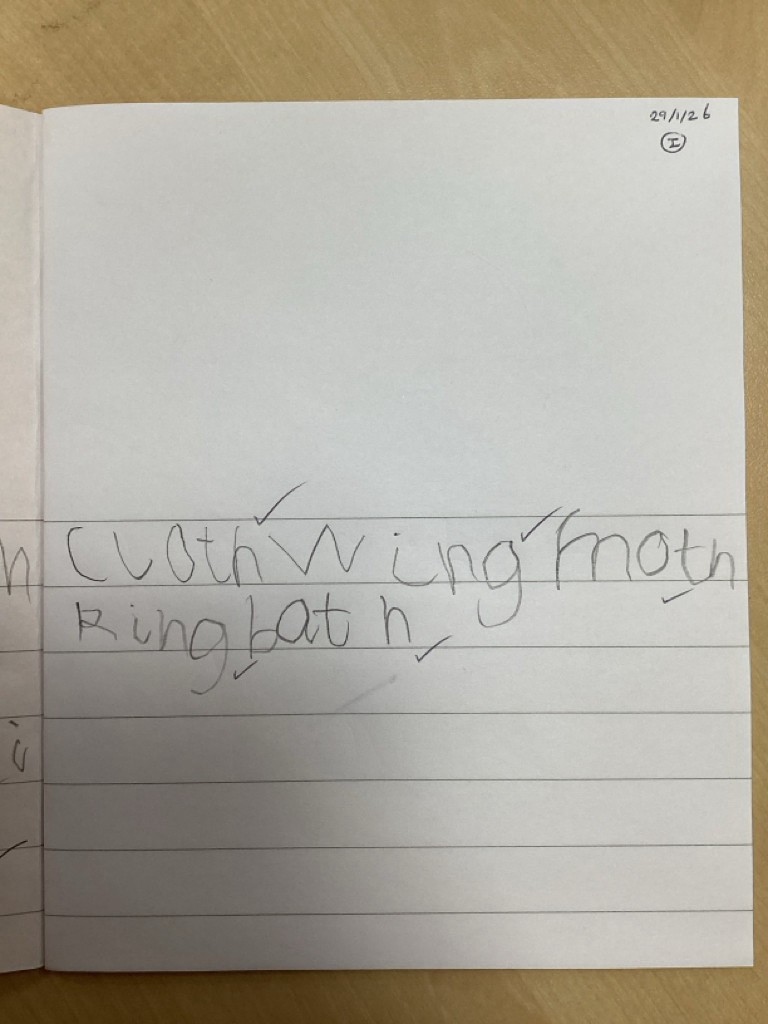 29/1/26
I
h cloth Wing moth
Ring bath
i